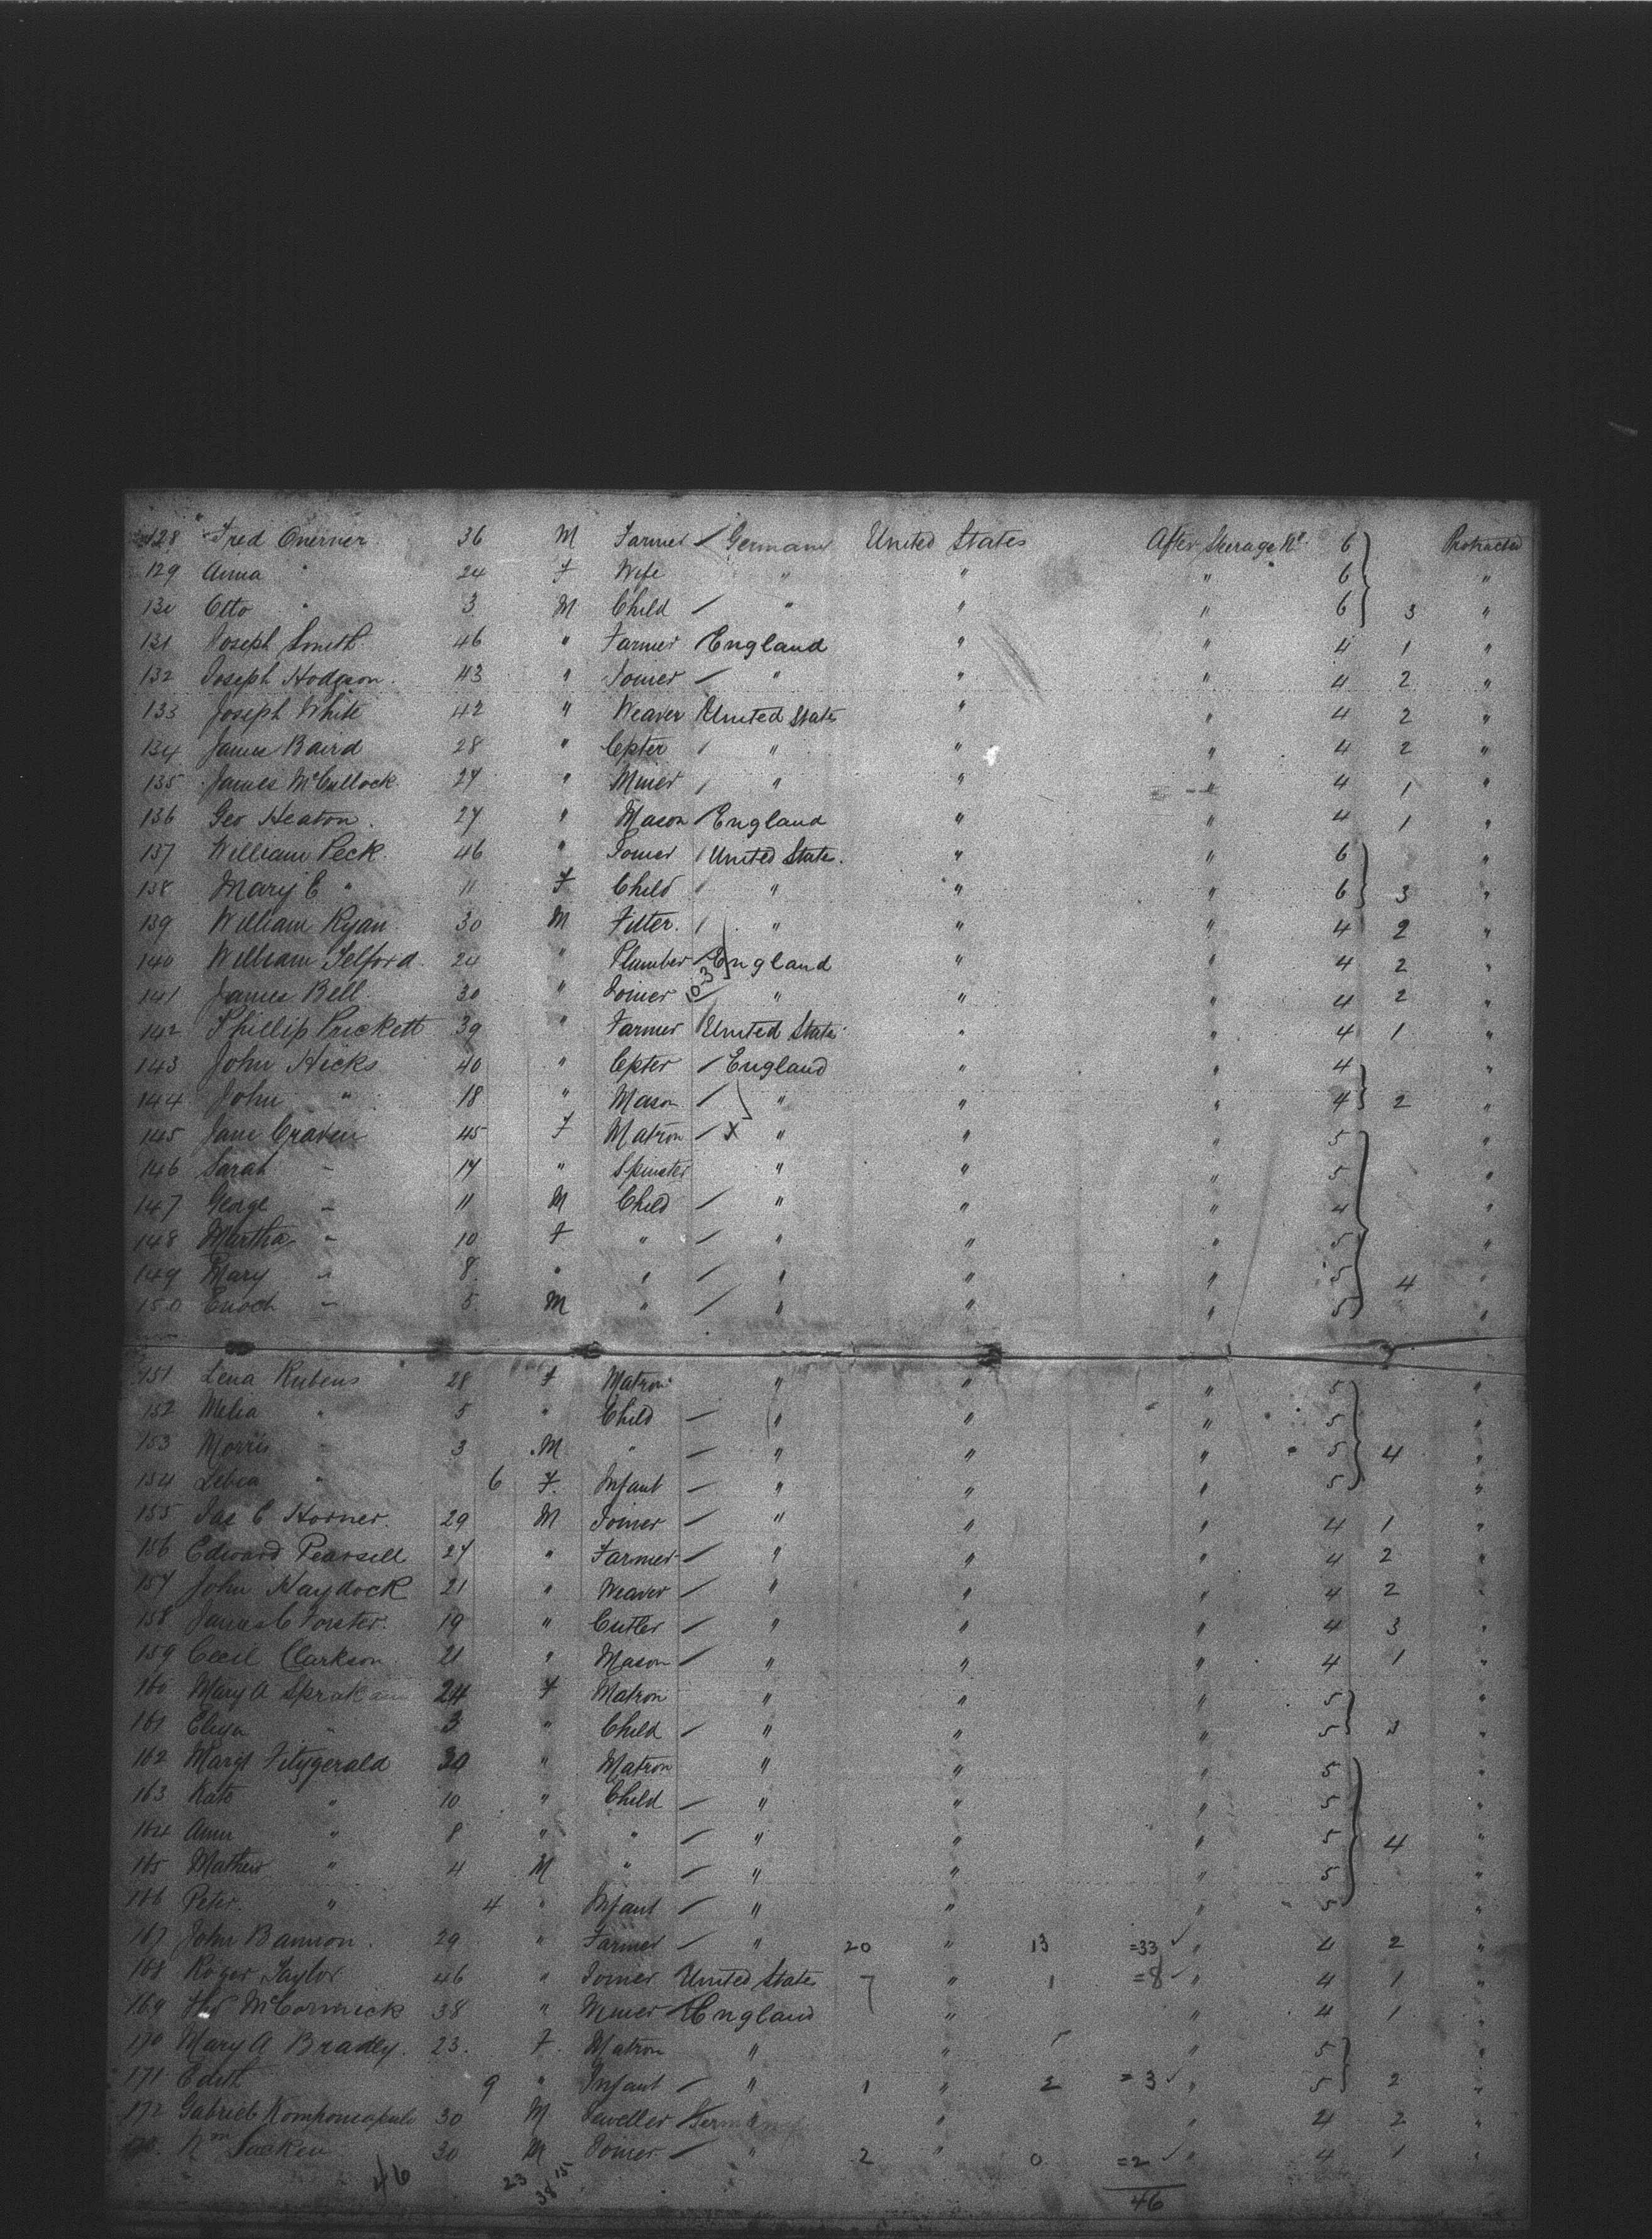 128 Fred Onerner 36 M Farmer / Germany United States After Sterage No. 6 Protracted
129 Anna " 24 F Wife " " " 6 "
130 Otto " 3 M Child / " " " 6 3 "
131 Joseph Smith 46 " Farmer / England " " 4 1 "
132 Joseph Hodgson 43 " Joiner / " " " 4 2 "
133 Joseph White 42 " Weaver / United States " " 4 2 "
134 James Baird 28 " Cpter / " " " 4 2 "
135 James McCullock 27 " Miner / " " " 4 1 "
136 Geo Heaton 27 " Mason / England " " 4 1 "
137 William Peck 46 " Joiner / United States " " 6 "
138 Mary E " 11 F Child / " " " 6 3 "
139 William Ryan 30 M Fitter / " " " 4 2 "
140 William Telford 24 " Plumber / England " " 4 2 "
10-3
141 James Bell 30 " Joiner / " " " 4 2 "
142 Phillip Prickett 39 " Farmer / United States " " 4 1 "
143 John Hicks 40 " Cpter / England " " 4 "
144 John " 18 " Mason / " " " 4 2 "
145 Jane Craven 45 F Matron / X " " " 5 "
146 Sarah " 17 " Spinster " " " 5 "
147 George " 11 M Child / " " " 4 "
148 Martha " 10 F " / " " " 5 "
149 Mary " 8 " " / " " " 5 4 "
150 Enoch " 5 M " / " " " 5 "
151 Lena Rubens 28 F Matron " " " 5 "
152 Melia " 5 " Child / " " " 5 "
153 Morris " 3 M " / " " " 5 4 "
154 " 6 F Infant / " " " 5 "
155 Jas C Horner 29 M Joiner / " " " 4 1 "
156 Edward Pearsell 27 " Farmer / " " " 4 2 "
157 John Haydock 21 " Weaver / " " " 4 2 "
158 James C Forster 19 " Cutler / " " " 4 3 "
159 Cecil Clarkson 21 " Mason / " " " 4 1 "
160 Mary A 24 F Matron " " " 5 "
161 Eliza " 3 " Child / " " " 5 3 "
162 Margt Fitzgerald 30 " Matron " " " 5 "
163 Kate " 10 " Child / " " " 5 "
164 Ann " 8 " " / " " " 5 4 "
165 Mathew " 4 M " / " " " 5 "
166 Peter " 4 " Infant / " " " 5 "
167 John Bannon 29 " Farmer / " 20 " 13 =33 ✓ " 4 2 "
168 Roger Taylor 46 " Joiner United States 7 " 1 =8 ✓ " 4 1 "
169 McCormick 38 " Miner / England " " 4 1 "
170 Mary A Bradley 23 F Matron " " " 5 "
171 Edith 9 " Infant / " 1 " 2 =3 ✓ " 5 2 "
172 Gabriel 30 M Jeweller / Germany " " 4 2 "
Wm 30 M Joiner / " 2 " 0 =2 ✓ " 4 1 "
46 23 38 15 46